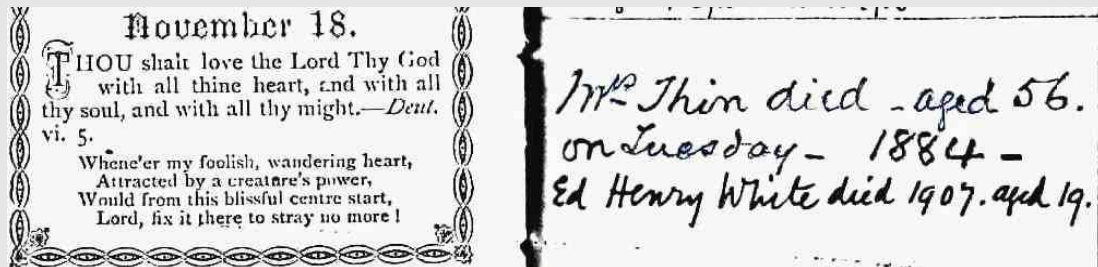 November 18.
THOU shalt love the Lord Thy God
with all thine heart, and with all
thy soul, and with all thy might.—Deut.
vi. 5.
Whene'er my foolish, wandering heart,
Attracted by a creature's power,
Would from this blissful centre start,
Lord, fix it there to stray no more!
Mrs Thin died - aged 56.
on Tuesday - 1884 -
Ed Henry White died 1907. aged 19.